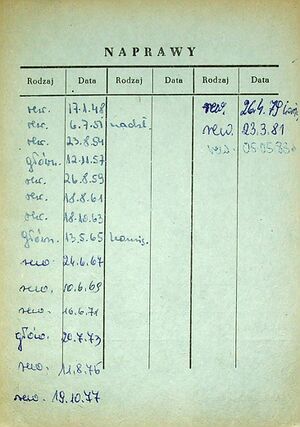 NAPRAWY
Rodzaj Data Rodzaj Data Rodzaj Data
rew. 17.1.48
rew. 6.7.51
rew. 23.8.54
główn. 12.11.57
rew. 26.8.59
rew. 18.8.61
rew. 18.10.63
główn. 13.5.65
rew. 24.6.67
rew. 10.6.69
rew. 16.6.71
głów. 20.7.73
rew. 11.8.75
rew. 19.10.77
rew. 26.4.79
rew. 23.3.81
rew.